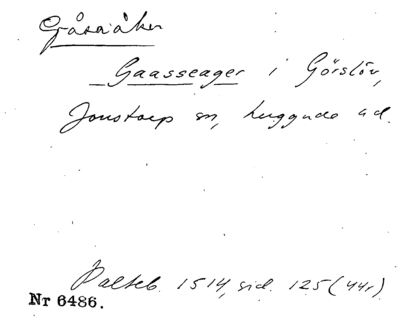 Gåsaåker
Gaasseager i Görslöv,
Jonstorp sn, Luggude hd.
Palteb. 1514, sid. 125 (44r)
Nr 6486.